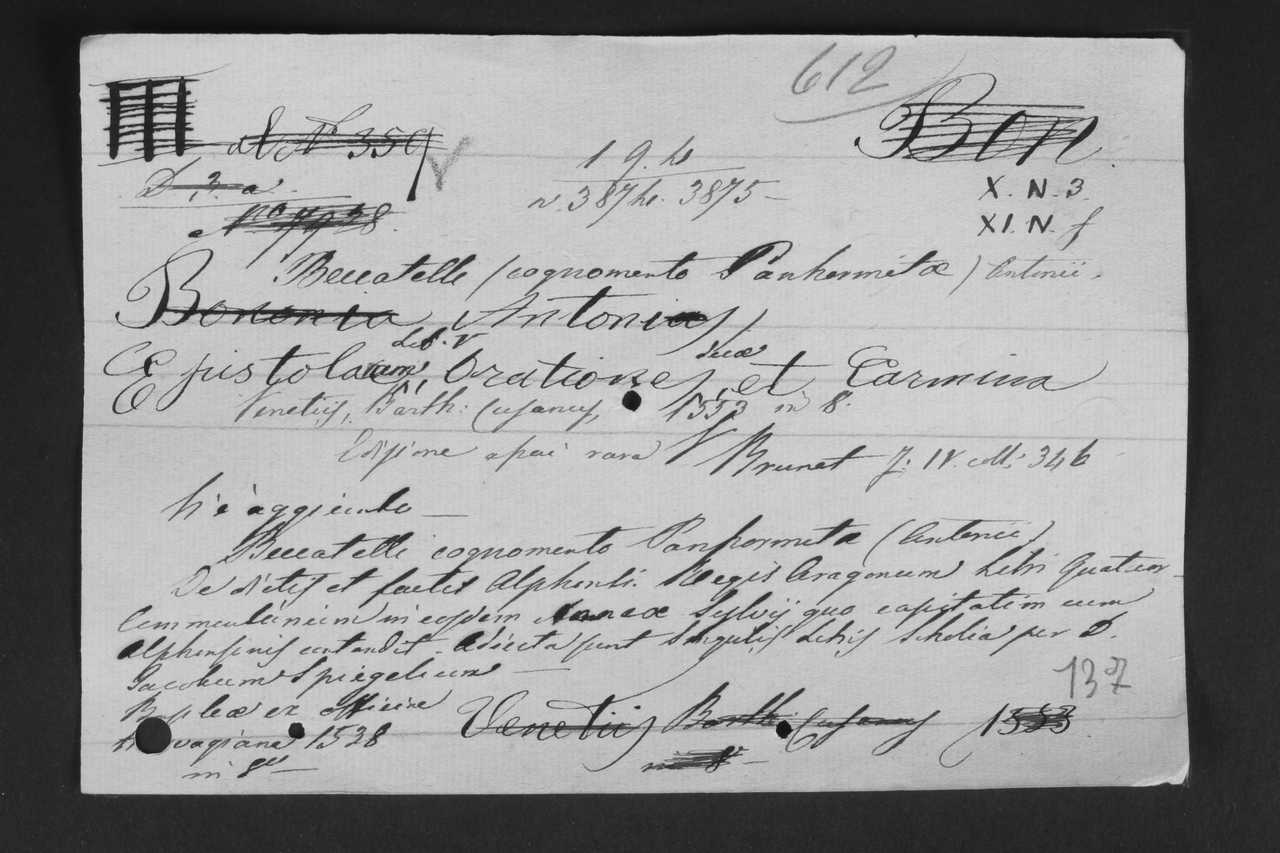 612
Bon
N° 359
1 9. h
D, 2. a.
n. 387 h. 3875 —
X. N. 3
XI. N. f
Beccatelle (cognomento Panhormitæ) Antonii.
Bononia Antonia
Epistolarum Lib. V, Orationes duæ, et Carmina
Venetiis, Barth: Cesanus, 1553 in 8.
Edizione assai rara V Brunet T. IV. coll. 346
Vi è aggiunto —
Beccatelli cognomento Panhormitæ (Antonii)
De dictis et factis Alphonsi Regis Aragonum Libri Quatuor —
Commentarium in eosdem Aeneæ Sylvij quo capitatim cum
Alphonsinis contendit. Adiecta sunt singulis Libris Scholia per D.
Jacobum Spiegelium —
137
Basileæ ex officina
Hervagiana 1538
in 8° —
Venetiis Barth. Cesanus 1553
in 8° —